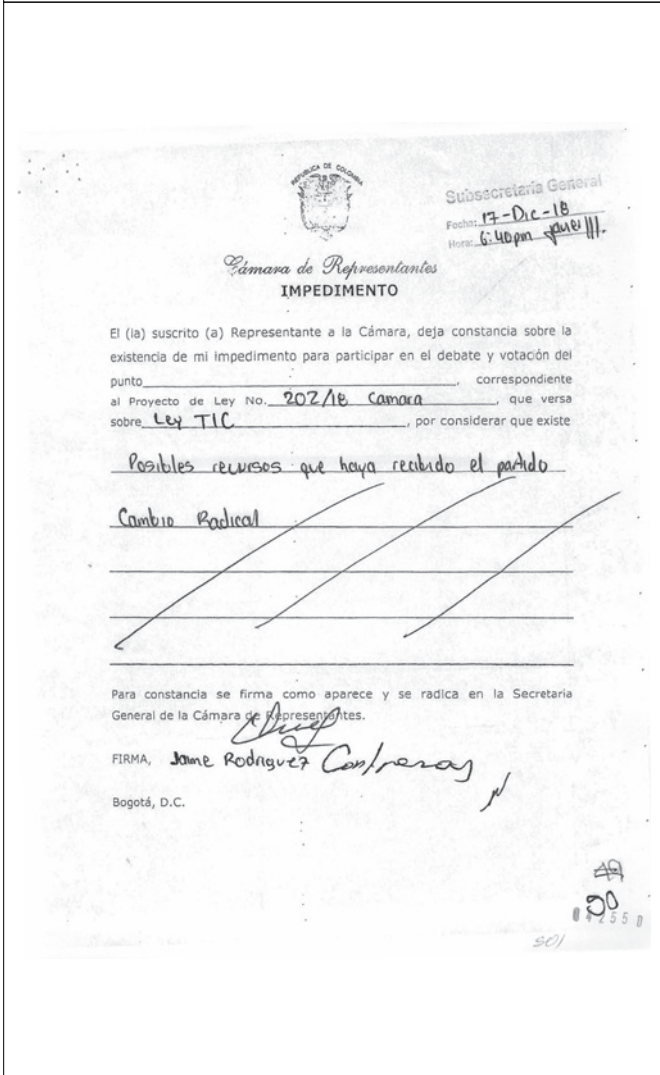 REPUBLICA DE COLOMBIA
Subsecretaría General
Fecha: 17-Dic-18
Hora: 6:40pm
Cámara de Representantes
IMPEDIMENTO
El (la) suscrito (a) Representante a la Cámara, deja constancia sobre la
existencia de mi impedimento para participar en el debate y votación del
punto, correspondiente
al Proyecto de Ley No. 202/18 Camara, que versa
sobre Ley TIC, por considerar que existe
Posibles recursos que haya recibido el partido
Cambio Radical
Para constancia se firma como aparece y se radica en la Secretaria
General de la Cámara de Representantes.
FIRMA, Jaime Rodriguez Contreras
Bogotá, D.C.
20
501